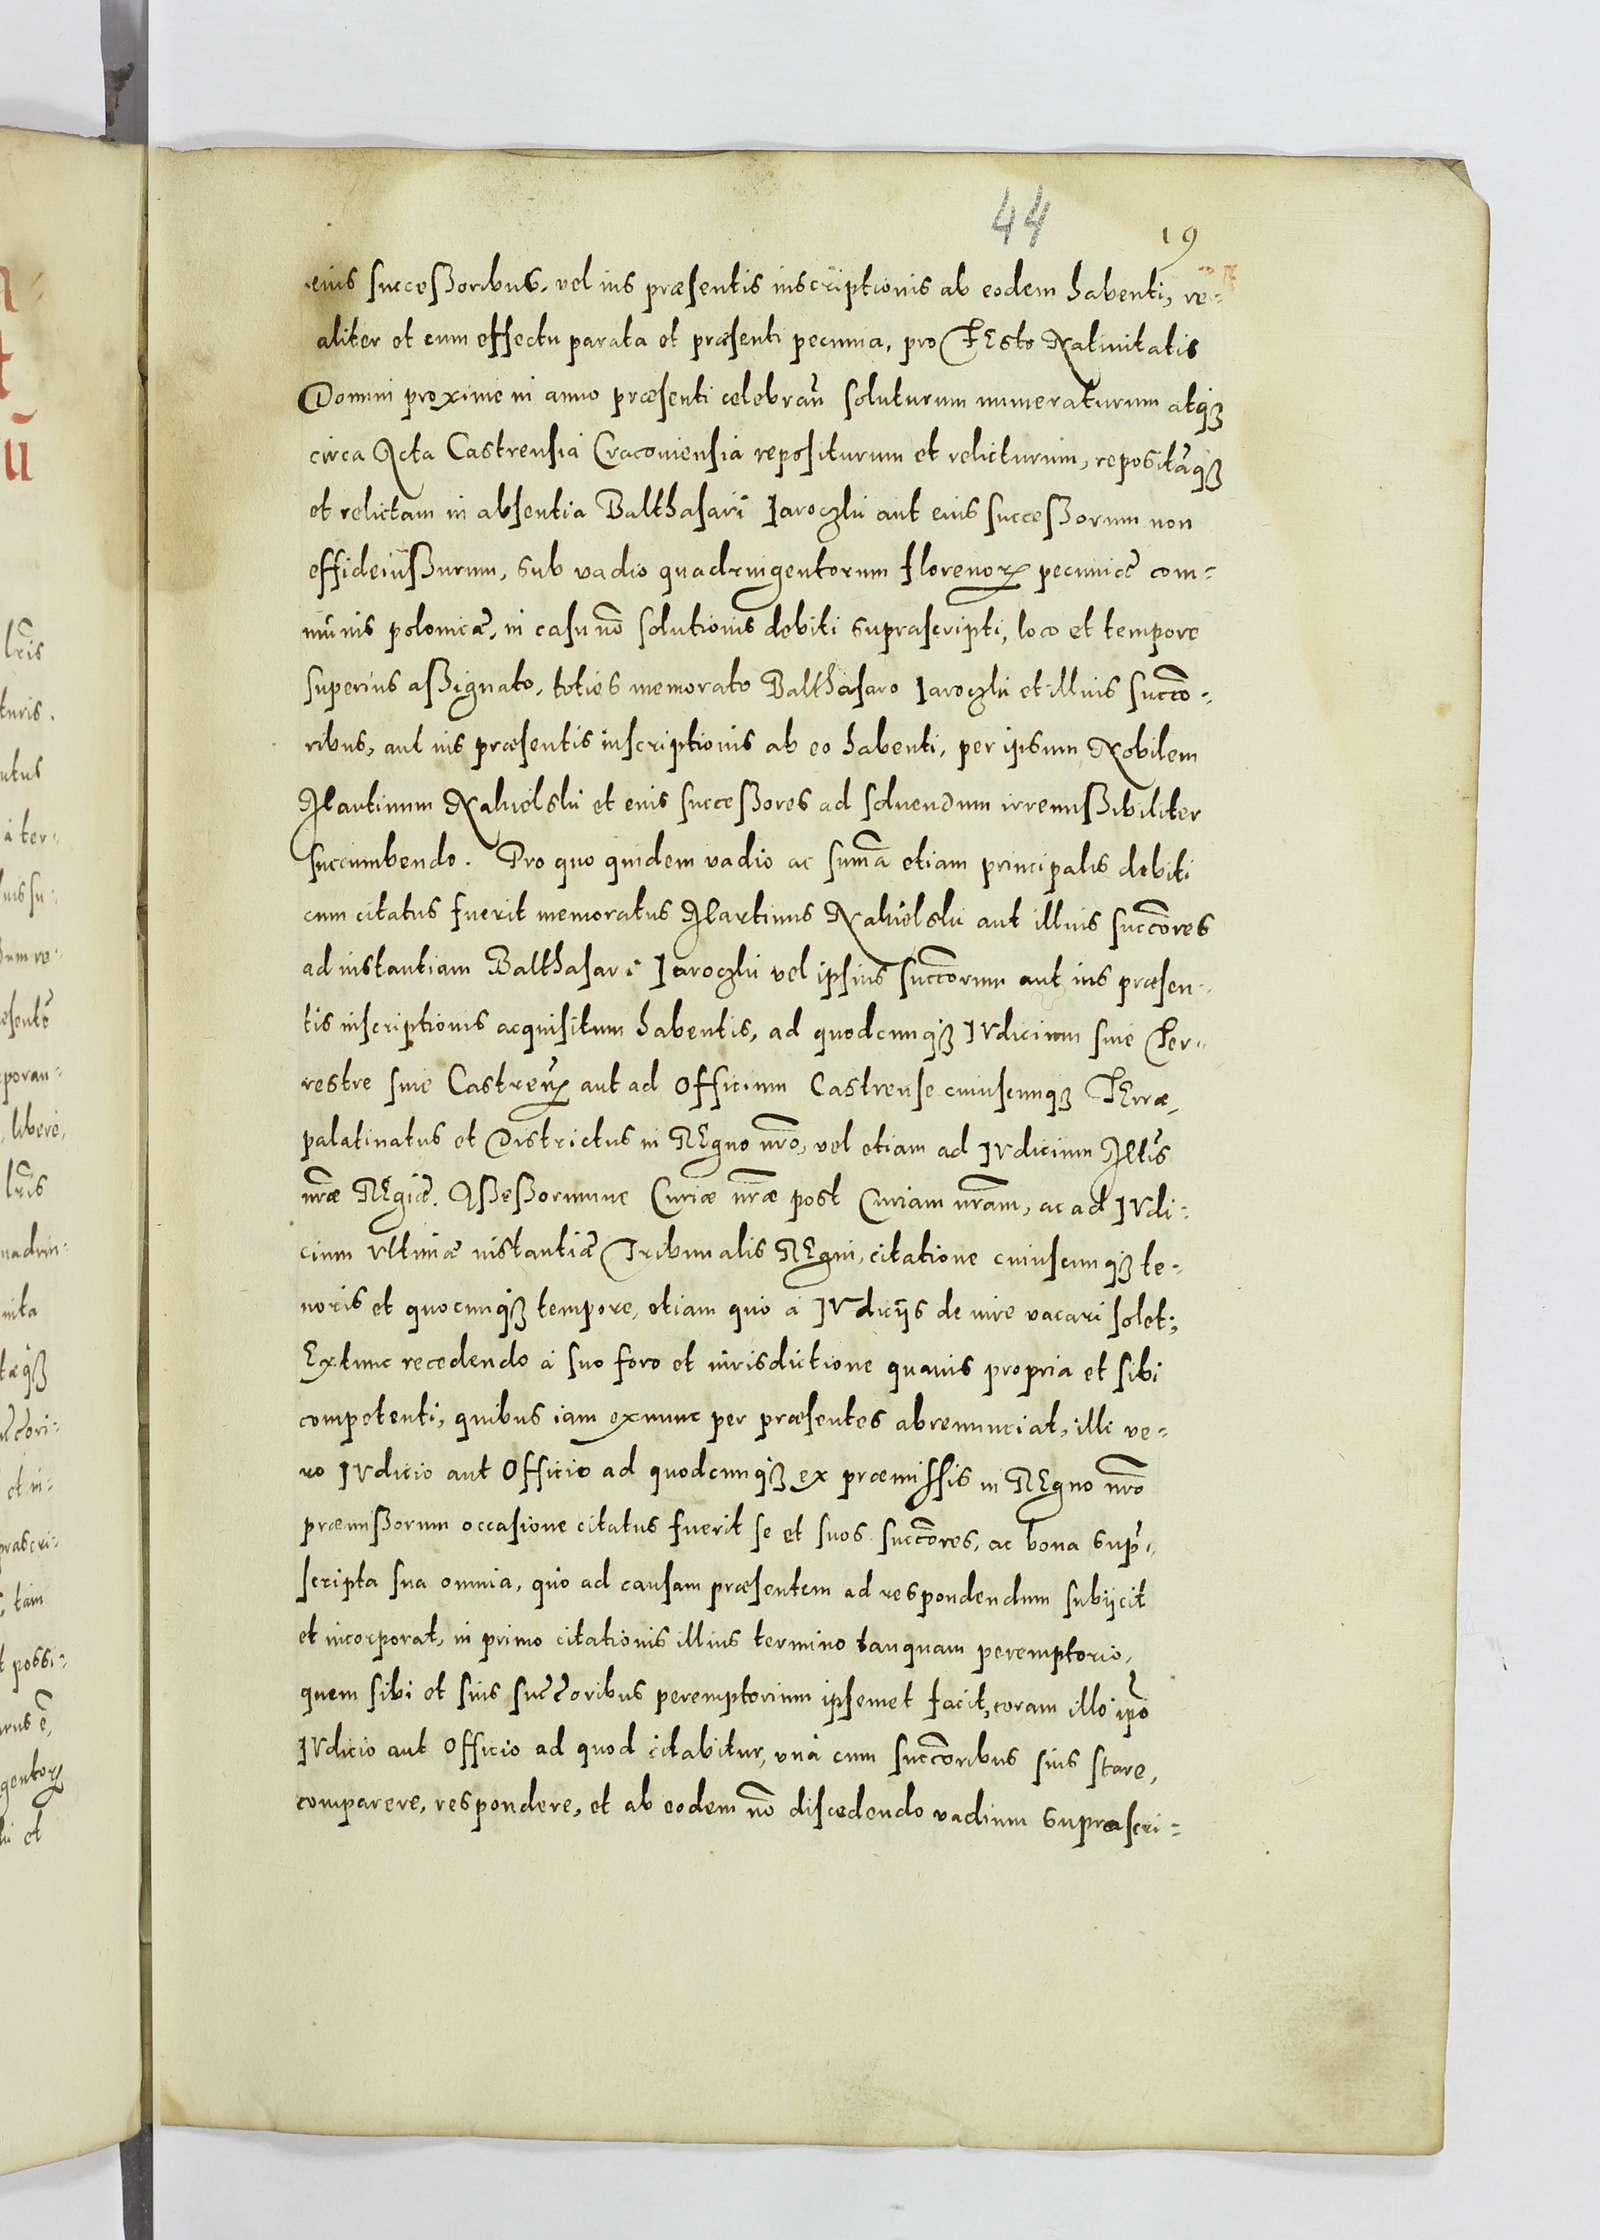 44
19
eius successoribus, vel ius præsentis inscriptionis ab eodem habenti, re-
aliter et cum effectu parata et præsenti pecunia, pro FEsto Natiuitatis
Domini proxime in anno præsenti celebrañ soluturum numeraturum atqȝ
circa Acta Castrensia Cracouiensia repositurum et relicturum, repositãqȝ
et relictam in absentia Balthasari Iaroczki aut eius successorum non
effideiussurum, sub vadio quadringentorum florenorꝝ pecuniæ com-
munis polonicæ, in casu nõ solutionis debiti suprascripti, loco et tempore
superius assignato, toties memorato Balthasaro Iaroczki et illius succo-
ribus, aut ius præsentis inscriptionis ab eo habenti, per ipsum Nobilem
Martinum Nakielski et eius successores ad soluendum irremissibiliter
succumbendo. Pro quo quidem vadio ac summa etiam principalis debiti
cum citatus fuerit memoratus Martinus Nakielski aut illius succores
ad instantiam Balthasari Iaroczki vel ipsius succorum aut ius præsen-
tis inscriptionis acquisitum habentis, ad quodcunqȝ IVdicium siue Ter-
restre siue Castreñ aut ad Officium Castrense cuiuscunqȝ TErræ,
palatinatus et Districtus in REgno nrõ, vel etiam ad IVdicium Mttis
nræ REgiæ. Assessorumue Curiæ nræ post Curiam nram, ac ad IVdi-
cium Vltimæ instantiæ Tribunalis REgni, citatione cuiuscunqȝ te-
noris et quocunqȝ tempore, etiam quo à IVdicijs de iure vacari solet;
Extunc recedendo à suo foro et iurisdictione quauis propria et sibi
competenti, quibus iam exnunc per præsentes abrenunciat, illi ve-
ro IVdicio aut Officio ad quodcunqȝ ex præmissis in REgno nrõ
præmissorum occasione citatus fuerit se et suos succores, ac bona supr-
scripta sua omnia, quo ad causam præsentem ad respondendum subijcit
et incorporat, in primo citationis illius termino tanquam peremptorio,
quem sibi et suis succoribus peremptorium ipsemet facit, coram illo ipo
IVdicio aut Officio ad quod citabitur, vnà cum succoribus suis stare,
comparere, respondere, et ab eodem nõ discedendo vadium suprascri-